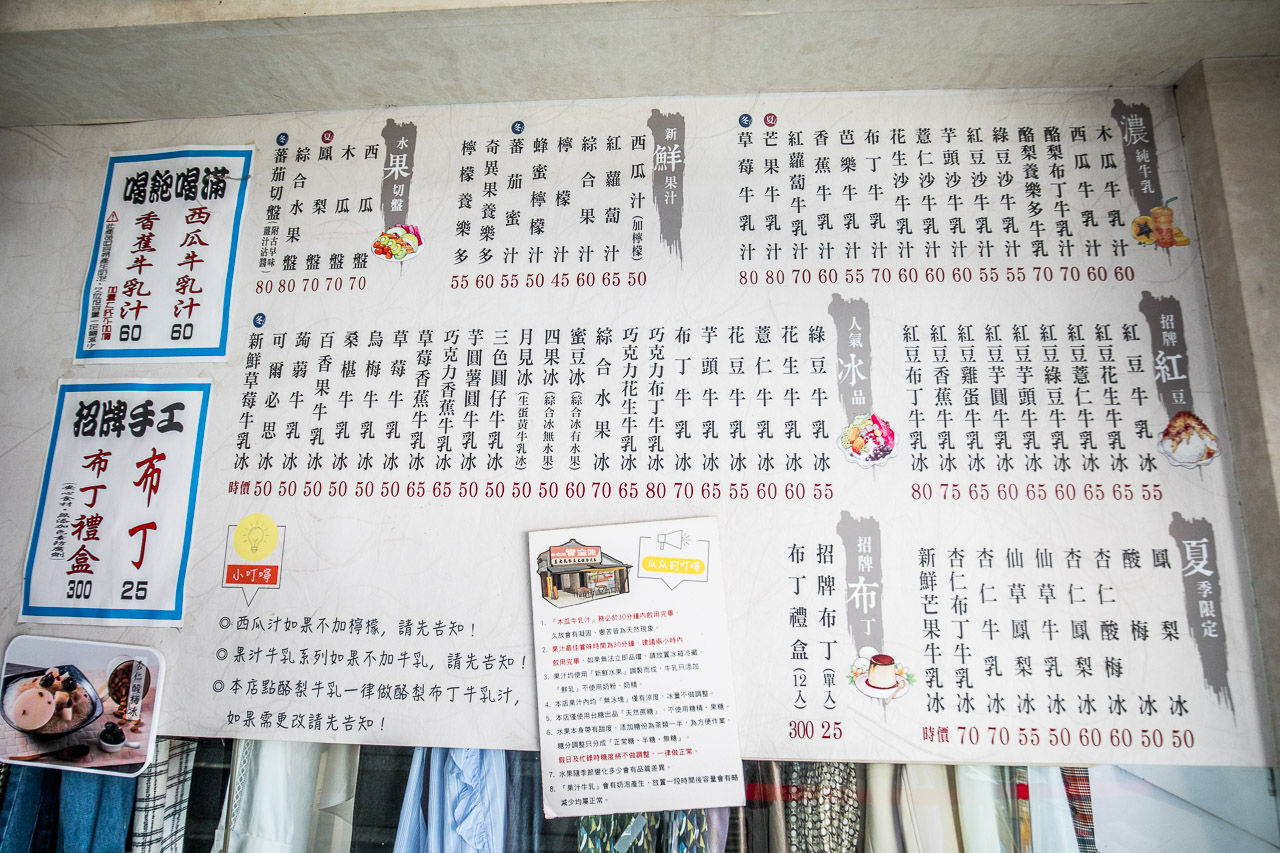 濃純牛乳
木瓜牛乳汁 60
西瓜牛乳汁 60
酪梨布丁牛乳汁 70
酪梨養樂多牛乳汁 70
綠豆沙牛乳汁 55
紅豆沙牛乳汁 55
芋頭沙牛乳汁 60
薏仁沙牛乳汁 60
花生沙牛乳汁 60
布丁牛乳汁 70
芭樂牛乳汁 55
香蕉牛乳汁 60
紅蘿蔔牛乳汁 70
夏 芒果牛乳汁 80
冬 草莓牛乳汁 80
新鮮果汁
西瓜汁(加檸檬) 50
紅蘿蔔汁 65
綜合果汁 60
檸檬汁 45
蜂蜜檸檬汁 50
冬 蕃茄蜜汁 55
奇異果養樂多 60
檸檬養樂多 55
水果切盤
西瓜盤 70
木瓜盤 70
夏 鳳梨盤 70
綜合水果盤 80
冬 蕃茄切盤(附古早味薑汁沾醬) 80
招牌紅豆
紅豆牛乳冰 55
紅豆花生牛乳冰 65
紅豆薏仁牛乳冰 65
紅豆綠豆牛乳冰 60
紅豆芋頭牛乳冰 60
紅豆芋圓牛乳冰 65
紅豆雞蛋牛乳冰 65
紅豆香蕉牛乳冰 75
紅豆布丁牛乳冰 80
人氣冰品
綠豆牛乳冰 55
花生牛乳冰 60
薏仁牛乳冰 60
花豆牛乳冰 55
芋頭牛乳冰 65
布丁牛乳冰 70
巧克力布丁牛乳冰 80
巧克力花生牛乳冰 65
綜合水果冰 70
蜜豆冰(綜合冰有水果) 60
四果冰(綜合冰無水果) 50
月見冰(生蛋黃牛乳冰) 50
三色圓仔牛乳冰 50
芋圓薯圓牛乳冰 50
巧克力香蕉牛乳冰 65
草莓香蕉牛乳冰 65
草莓牛乳冰 50
烏梅牛乳冰 50
桑椹牛乳冰 50
百香果牛乳冰 50
蒟蒻牛乳冰 50
可爾必思冰 50
冬 新鮮草莓牛乳冰 時價
夏季限定
鳳梨冰 50
酸梅冰 50
杏仁酸梅冰 60
杏仁鳳梨冰 60
仙草牛乳冰 50
仙草鳳梨冰 55
杏仁牛乳冰 70
杏仁布丁牛乳冰 70
新鮮芒果牛乳冰 時價
招牌布丁
招牌布丁(單入) 25
布丁禮盒(12入) 300
喝飽喝滿
西瓜牛乳汁 60
香蕉牛乳汁 60
招牌手工
布丁 25
布丁禮盒 300
杏仁酸梅冰
小叮嚀
◎西瓜汁如果不加檸檬, 請先告知!
◎果汁牛乳系列如果不加牛乳, 請先告知!
◎本店點酪梨牛乳一律做酪梨布丁牛乳汁,
如果需更改請先告知!
瓜瓜的叮嚀
1. 「木瓜牛乳汁」務必於30分鐘內飲用完畢，
久放會有凝固、變苦皆為天然現象。
2. 果汁最佳賞味時間為30分鐘，建議兩小時內
飲用完畢，如果無法立即品嚐，請放置冰箱冷藏。
3. 果汁均使用「新鮮水果」調製而成，牛乳只添加
「鮮乳」不使用奶粉、奶精。
4. 本店果汁內均「無冰塊」僅有涼度，冰量不做調整。
5. 本店僅使用台糖出品「天然蔗糖」，不使用糖精、果糖。
6. 水果本身帶有甜度，添加糖份為茶類一半，為方便作業，
糖分調整只分成「正常糖、半糖、無糖」。
假日及忙碌時糖度將不做調整，一律做正常。
7. 水果隨季節變化多少會有品質差異。
8. 「果汁牛乳」會有奶泡產生，放置一段時間後容量會有略
減少均屬正常。